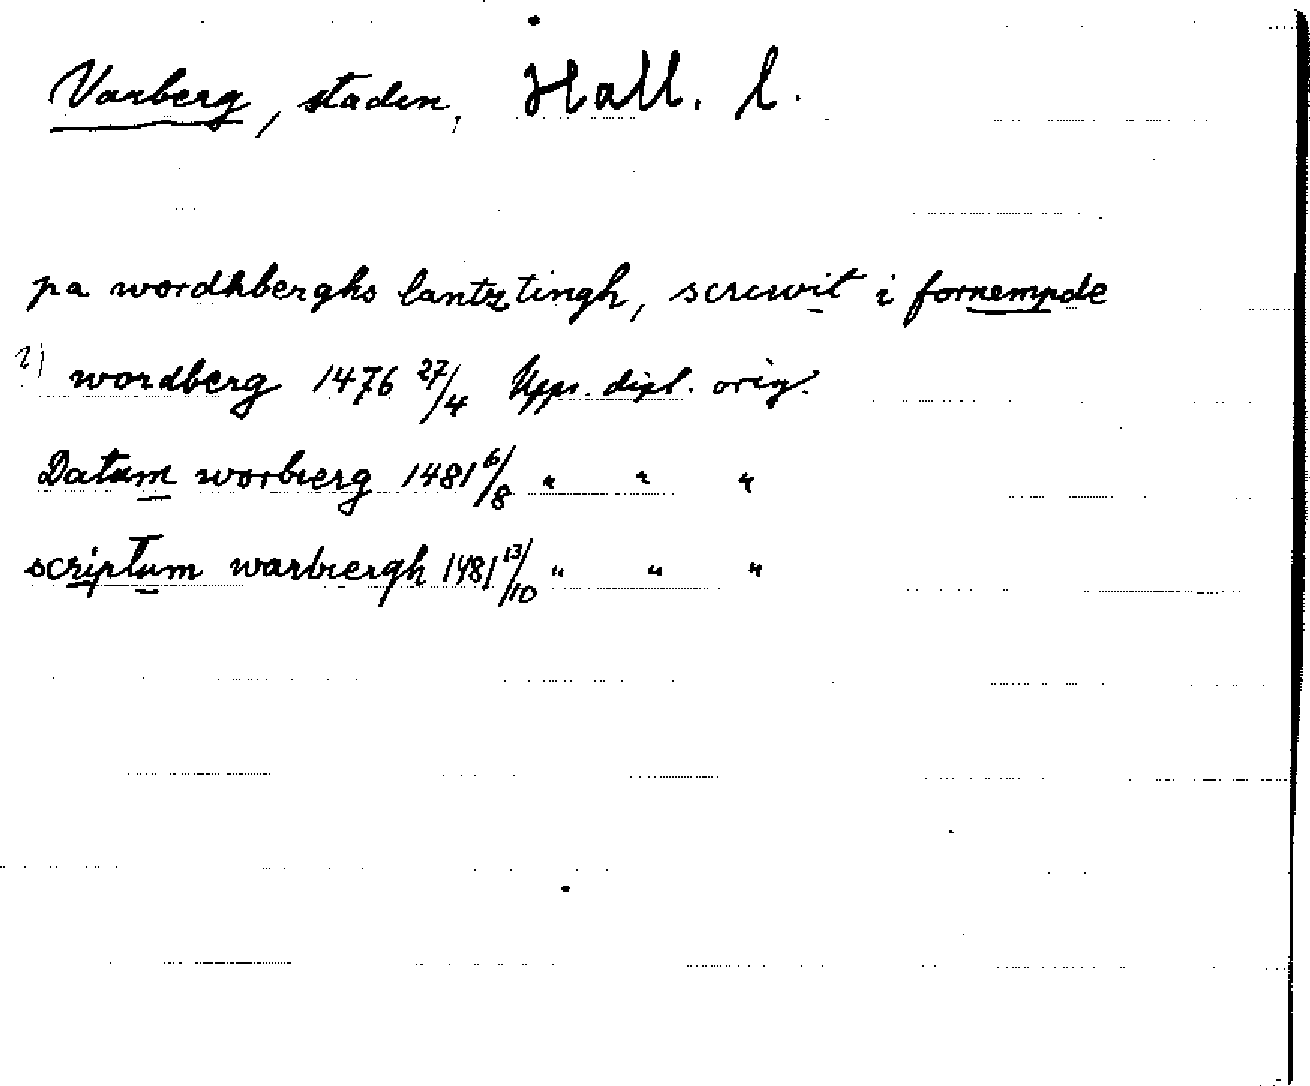 Varberg, staden, Hall. l.
pa wordhberghs lantztingh, screwit i fornempde
?) wordberg 1476 27/4 Upps. dipl. orig.
Datum worbierg 1481 6/8 " " "
scriptum warbiergh 1481 13/10 " " "